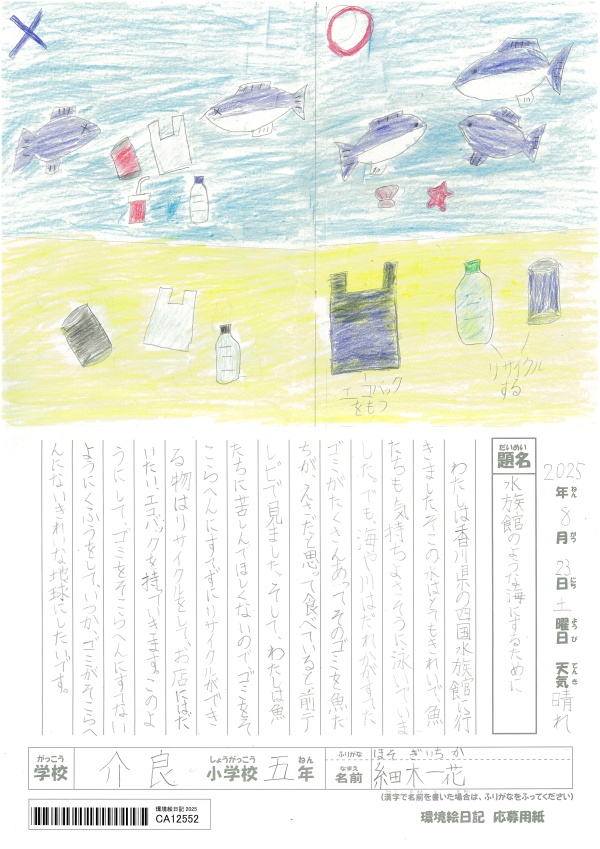 エコバック
をもつ
リサイクル
する
2025年ねん8月がつ23日にち土曜日ようび 天気てんき晴れ
題名だいめい
水族館のような海にするために
わたしは香川県の四国水族館に行
きました。そこの水はとてもきれいで、魚
たちも気持ちよさそうに泳いでいま
した。でも、海や川はだれかがすてた
ゴミがたくさんあって、そのゴミを魚た
ちが、えさだと思って食べていると前テ
レビで見ました。そして、わたしは魚
たちに苦しんでほしくないので、ゴミをそ
こらへんにすてずにリサイクルができ
る物はリサイクルをして、お店にはだ
いたい、エコバックを持っていきます。このよ
うにして、ゴミをそこらへんにすてない
ようにくふうをして、いつか、ゴミがそこらへ
んにないきれいな地球にしたいです。
学校がっこう 介良 小学校しょうがっこう 五 年ねん
ふりがな ほそぎいちか
名前なまえ 細木一花
(漢字で名前を書いた場合は、ふりがなをふってください)
環境絵日記 2025
CA12552
環境絵日記 応募用紙